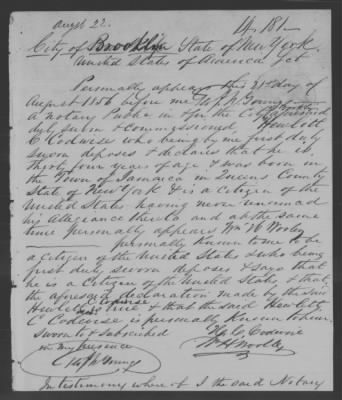 Augst 22.
14.181
City of Brooklyn State of New York
United States of America Set
Personally appears this 21st day of
August 1856 before me
a Notary Public in & for the City aforesaid
duly sworn & Commissioned, Hewlett
C Codwise who being by me first duly
sworn deposes & declares that he is
Thirty four years of age & was born in
the Town of Jamaica in Queens County
State of New York & is a citizen of the
United States having never renounced
his Allegiance thereto and at the same
time personally appears Wm H Wooley
personally known to me to be
a Citizen of the United States & who being
first duly sworn deposes & says that
he is a Citizen of the United States, & that
the aforesaid declaration made by the said
Hewlett Codwise is true & that the said Hewlett
C Codwise is personally known to him.
Sworn to & Subscribed
in my presence
C Codwise
W H Wooley
In testimony where of I the said Notary